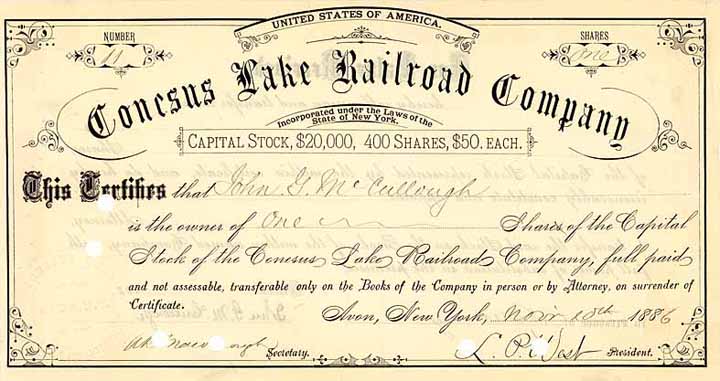 UNITED STATES OF AMERICA.
NUMBER
11
SHARES
One
Conesus Lake Railroad Company
Incorporated under the Laws of the
State of New York.
CAPITAL STOCK, $20,000, 400 SHARES, $50. EACH.
This Certifies that John G. McCullough
is the owner of One Shares of the Capital
Stock of the Conesus Lake Railroad Company, full paid
and not assessable, transferable only on the Books of the Company in person or by Attorney, on surrender of
Certificate.
Avon, New York, Novr 1886
Secretary.
L. P. West President.